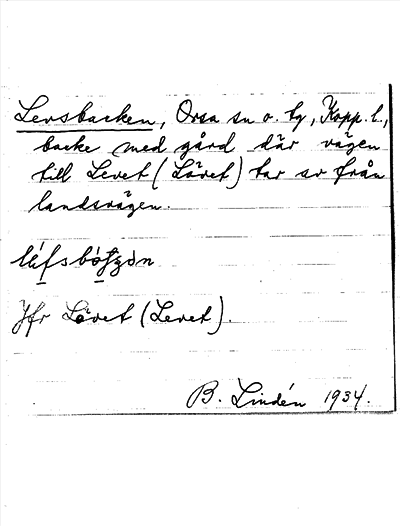 Levsbacken, Orsa sn o. tg, Kopp. l.,
backe med gård där vägen
till Levet (Lövet) tar av från
landsvägen.
Jfr Lövet (Levet).
B. Lindén 1934.